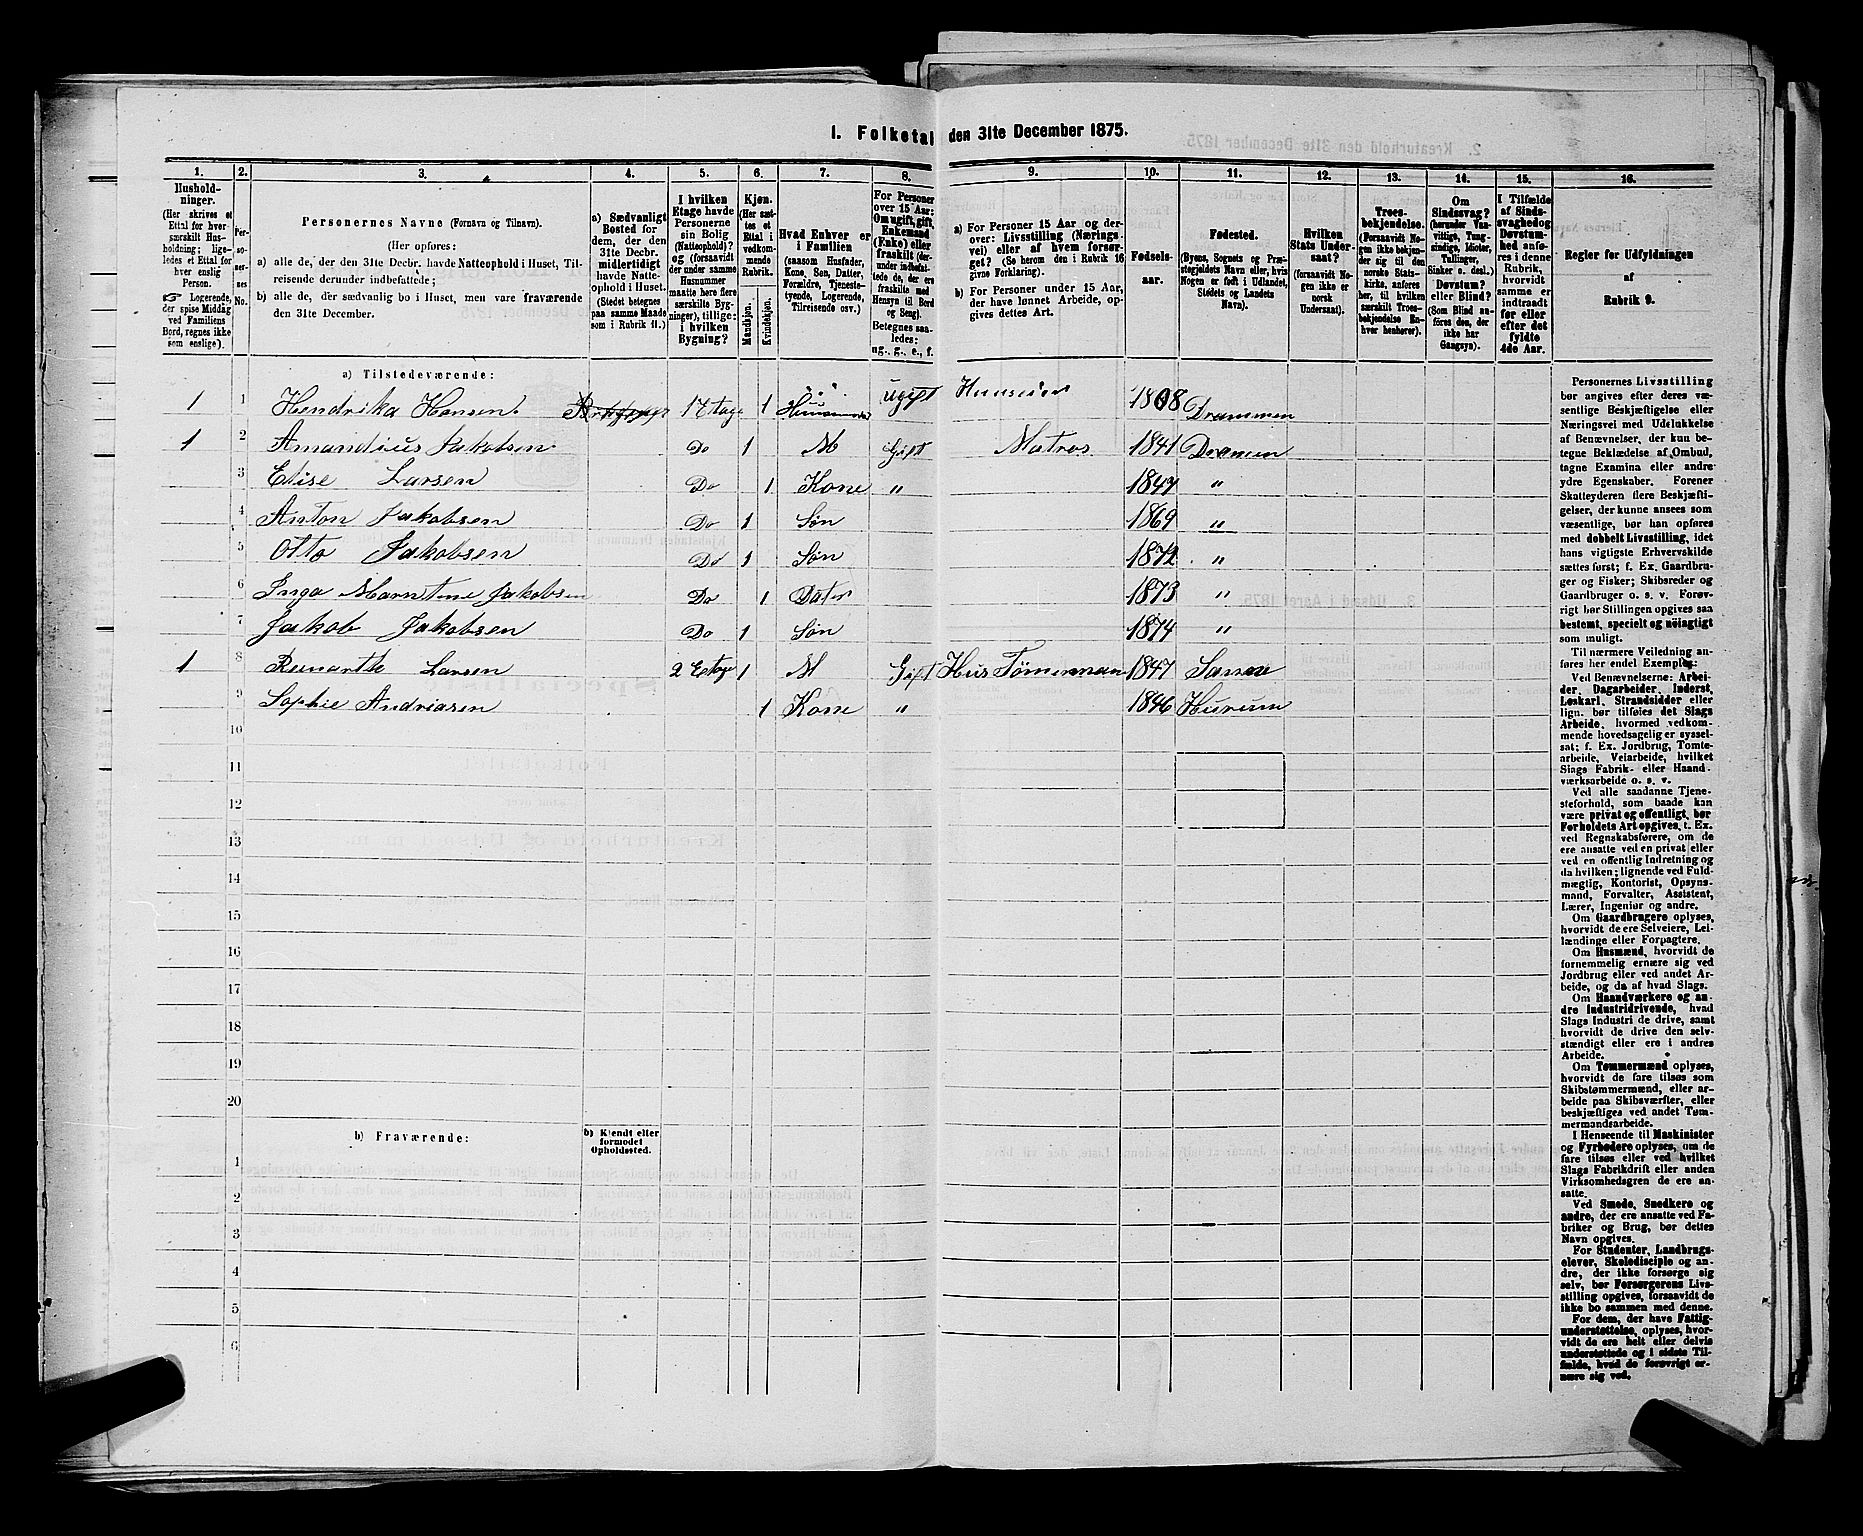 I. Folketal den 31te December 1875.
1. 2. 3. 4. 5. 6. 7. 8. 9. 10. 11. 12. 13. 14. 15. 16.
Husholdninger.
(Her skrives et Ettal for hver særskilt Husholdning; ligeledes et Ettal for hver enslig Person.
Logerende, der spise Middag ved Familiens Bord, regnes ikke som enslige).
Personernes No.
Personernes Navne (Fornavn og Tilnavn).
(Her opføres:
a) alle de, der den 31te Decbr. havde Natteophold i Huset, Tilreisende derunder indbefattede;
b) alle de, der sædvanlig bo i Huset, men vare fraværende den 31te December.
a) Sædvanligt Bosted for dem, der den 31te Decbr. midlertidigt havde Natteophold i Huset.
(Stedet betegnes paa samme Maade som i Rubrik 11.)
I hvilken Etage havde Personerne sin Bolig (Natteophold)? og (forsaavidt der under samme Husnummer maatte være flere særskilte Bygninger), tillige: i hvilken Bygning?
Kjøn.
(Her sættes et Ettal i vedkommende Rubrik.
Mandkjøn. Kvindekjøn.
Hvad Enhver er i Familien
(saasom Husfader, Kone, Søn, Datter, Forældre, Tjenestetyende, Logerende, Tilreisende osv.)
For Personer over 15 Aar: Om ugift, gift, Enkemand (Enke) eller fraskilt (derunder indbefattede de, der ere fraskilte med Hensyn til Bord og Seng).
Betegnes saaledes: ug., g., e., f.
a) For Personer 15 Aar og derover: Livsstilling (Næringsvei) eller af hvem forsørget? (Se herom den i Rubrik 16 givne Forklaring).
b) For Personer under 15 Aar, der have lønnet Arbeide, opgives dettes Art.
Fødselsaar.
Fødested.
(Byens, Sognets og Præstegjeldets Navn eller, hvis Nogen er født i Udlandet, Stedets og Landets Navn).
Hvilken Stats Undersaat?
(forsaavidt Nogen ikke er norsk Undersaat).
Troesbekjendelse.
(Forsaavidt Nogen ikke bekjender sig til den norske Statskirke, anføres her, til hvilken særskilt Troesbekjendelse Enhver henhører).
Om Sindssvag? (herunder Vanvittige, Tungsindige, Idioter, Tullinger, Sinker o. desl.) Døvstum? eller Blind? (Som Blind anføres den, der ikke har Gangsyn).
I Tilfælde af Sindssvaghed og Døvstumhed anføres i denne Rubrik, hvorvidt samme er indtraadt før eller efter det fyldte 4de Aar.
Regler for Udfyldningen af Rubrik 9.
a) Tilstedeværende:
1 1 Hendrika Hansen. 1 Etage 1 ugift 1808 Drammen
1 2 Amandius Jakobsen Do 1 M Gift Matros 1841 Dramen
3 Elise Larsen Do 1 Kone " 1847 "
4 Anton Jakobsen Do 1 Søn 1869 "
5 Otto Jakobsen Do 1 Søn 1872 "
6 Inga Marntine Jakobsen Do 1 Dater 1873 "
7 Jakob Jakobsen Do 1 Søn 1874 "
1 8 Larsen 2 Etage 1 M Gift Hus Tømerman 1847
9 Sophie Andriasen 1 Kone " 1846 Hurum
10
11
12
13
14
15
16
17
18
19
20
b) Fraværende:
b) Kjendt eller formodet Opholdssted.
1
2
3
4
5
6
Personernes Livsstilling
bør angives efter deres væ-
sentlige Beskjæftigelse eller
Næringsvei med Udelukkelse
af Benævnelser, der kun be-
tegne Beklædelse af Ombud,
tagne Examina eller andre
ydre Egenskaber. Forener
Skatteyderen flere Beskjæfti-
gelser, der kunne ansees som
væsentlige, bør han opføres
med dobbelt Livsstilling, idet
hans vigtigste Erhvervskilde
sættes først; f. Ex. Gaardbru-
ger og Fisker; Skibsreder og
Gaardbruger o. s. v. Forøv-
rigt bør Stillingen opgives saa
bestemt, specielt og nøiagtigt
som muligt.
Til nærmere Veiledning an-
føres her endel Exempler:
Ved Benævnelserne: Arbei-
der, Dagarbeider, Inderst,
Løskarl, Strandsidder eller
lign. bør tilføies det Slags
Arbeide, hvormed vedkom-
mende hovedsagelig er syssel-
sat; f. Ex. Jordbrug, Tomte-
arbeide, Veiarbeide, hvilket
Slags Fabrik- eller Haand-
værksarbeide o. s. v.
Ved alle saadanne Tjene-
steforhold, som baade kan
være privat og offentligt, bør
Forholdets Art opgives, t. Ex.
ved Regnskabsførere, om de
ere ansatte ved en privat eller
ved en offentlig Indretning og
da hvilken; lignende ved Fuld-
mægtig, Kontorist, Opsyns-
mand, Forvalter, Assistent,
Lærer, Ingeniør og andre.
Om Gaardbrugere oplyses,
hvorvidt de ere Selveiere, Lei-
lændinge eller Forpagtere.
Om Husmænd, hvorvidt de
fornemmelig ernære sig ved
Jordbrug eller ved andet Ar-
beide, og da af hvad Slags.
Om Haandværkere og an-
dre Industridrivende, hvad
Slags Industri de drive, samt
hvorvidt de drive den selv-
stændigt eller ere i andres
Arbeide.
Om Tømmermænd oplyses,
hvorvidt de fare tilsøs som
Skibstømmermænd, eller ar-
beide paa Skibsværfter, eller
beskjæftiges ved andet Tøm-
mermandsarbeide.
I Henseende til Maskinister
og Fyrbødere oplyses, om de
fare tilsøs eller ved hvilket
Slags Fabrikdrift eller anden
Virksomhedsgren de ere an-
satte.
Ved Smede, Snedkere og
andre, der ere ansatte ved Fa-
briker og Brug, bør dettes
Navn opgives.
For Studenter, Landbrugs-
elever, Skoledisciple og an-
dre, der ikke forsørge sig
selv, bør Forsørgerens Livs-
stilling opgives, forsaavidt de
ikke bo sammen med denne.
For dem, der have Fattig-
understøttelse, oplyses, hvor-
vidt de ere helt eller delvis
understøttede og i sidste Til-
fælde, hvad de forøvrigt er-
nære sig ved.